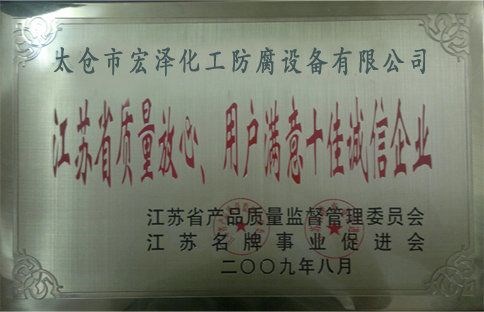 太仓市宏泽化工防腐设备有限公司
江苏省质量放心、用户满意十佳诚信企业
江苏省产品质量监督管理委员会
江苏名牌事业促进会
二〇〇九年八月